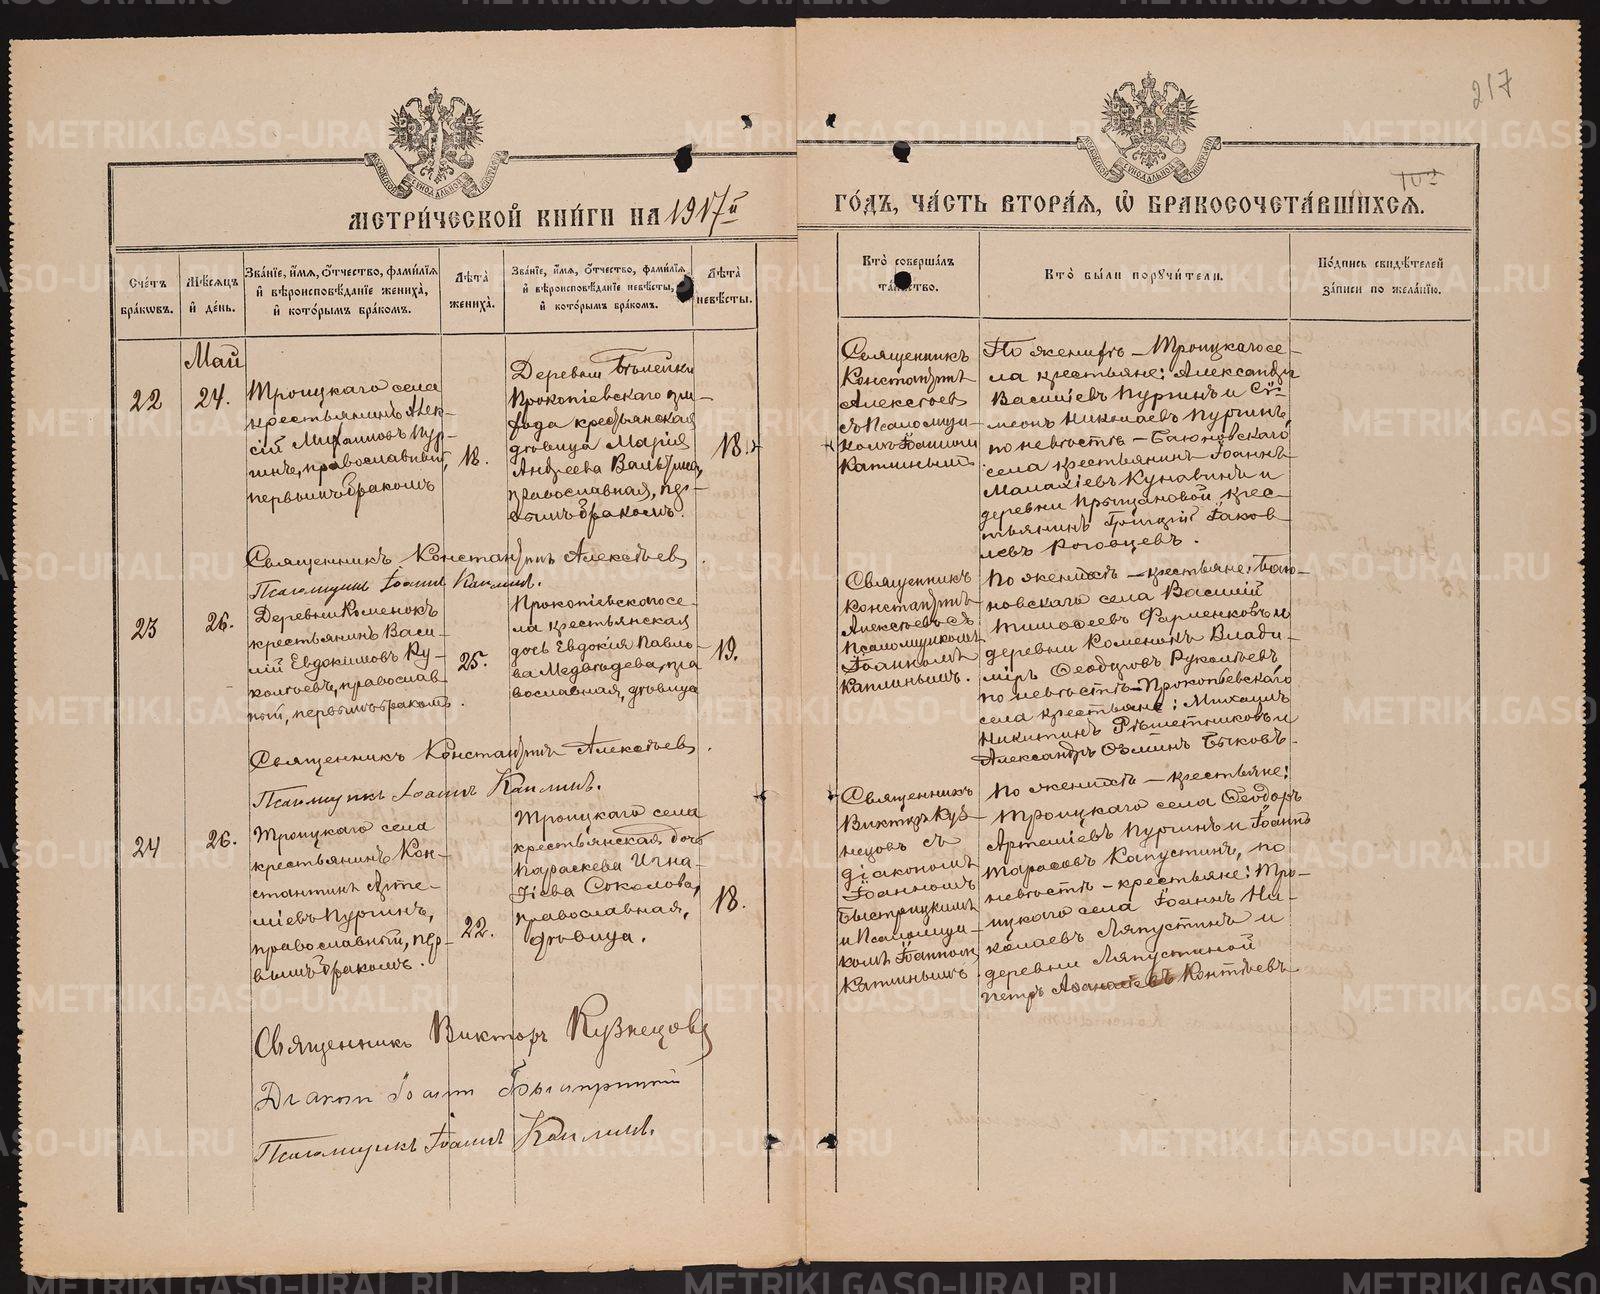 217
МЕТРИ́ЧЕСКОЙ КНИ́ГИ НА 1917й
ГО́ДЪ, ЧА́СТЬ ВТОРА́Я, Ѽ БРАКОСОЧЕТА́ВШИХСЯ.
Сче́тъ бра́кѡвъ.
Мѣ́сяцъ и де́нь.
Зва́нїе, и́мя, ѻ́тчество, фами́лїя
и вѣроисповѣ́данїе жениха̀,
и кото́рымъ бра́комъ.
Лѣта̀ жениха̀.
Зва́нїе, и́мя, ѻ́тчество, фами́лїя
и вѣроисповѣ́данїе невѣ́сты,
и кото́рымъ бра́комъ.
Лѣта̀ невѣ́сты.
Кто̀ соверша́лъ
та́инство.
Кто̀ бы́ли порꙋчи́тели.
По́дпись свидѣ́телей
за́писи по жела́нїю.
Май
22
24.
Троицкаго села
крестьянинъ Алек-
сій Михаиловъ Пур-
гинъ, православный,
первымъ бракомъ
18.
Деревни
Прокопіевскаго при-
хода крестьянская
дѣвица Марія
Андреева
православная, пер-
вымъ бракомъ.
18.
Священникъ
Константинъ
Алексѣевъ
съ Псаломщи-
комъ Іоанномъ
Каплинымъ
По женихѣ – Троицкаго се-
ла крестьяне: Александръ
Василіевъ Пургинъ и Сѵ-
меонъ Николаевъ Пургинъ,
по невѣстѣ – Баюновскаго
села крестьянинъ Іоаннъ
Малахіевъ Кунавинъ и
деревни крес-
тьянинъ Григорій Іаков-
левъ Роговцевъ.
Священникъ Константинъ Алексѣевъ
Псаломщикъ Іоаннъ Каплинъ.
23
26.
Деревни Коменокъ
крестьянинъ Васи-
лій Евдокимовъ Ру-
колѣевъ, православ-
ный, первымъ бракомъ.
25.
Прокопіевскаго се-
ла крестьянская
дочь Евдокія Павло-
ва Медвѣдева, пра-
вославная, дѣвица
19.
Священникъ
Константинъ
Алексѣевъ съ
Псаломщикомъ
Іоанномъ
Каплинымъ.
По женихѣ – крестьяне: Баю-
новскаго села Василій
Тимоѳеевъ Фарленковъ и
деревни Коменокъ Влади-
міръ Ѳеодоровъ Руколѣевъ
по невѣстѣ – Прокопьевскаго
села крестьяне: Михаилъ
Никитинъ Рѣшетниковъ и
Александръ Быковъ.
Священникъ Константинъ Алексѣевъ.
Псаломщикъ Іоаннъ Каплинъ.
24
26.
Троицкаго села
крестьянинъ Кон-
стантинъ Арте-
міевъ Пургинъ,
православный, пер-
вымъ бракомъ.
22.
Троицкаго села
крестьянская дочь
Параскева Игна-
тіева Соколова,
православная,
дѣвица.
18.
Священникъ
Викторъ Куз-
нецовъ съ
діакономъ
Іоанномъ
Быстрицкимъ
и Псаломщи-
комъ Іоанномъ
Каплинымъ
По женихѣ – крестьяне:
Троицкаго села Ѳеодоръ
Артеміевъ Пургинъ и Іоаннъ
Тарасовъ Капустинъ, по
невѣстѣ – крестьяне: Тро-
ицкаго села Іоаннъ Ни-
колаевъ Ляпустинъ и
деревни Ляпустиной
Петръ Аѳанасіевъ Контѣевъ
Священникъ Викторъ Кузнецовъ
Діаконъ Іоаннъ Быстрицкій
Псаломщикъ Іоаннъ Каплинъ.
METRIKI.GASO-URAL.RU